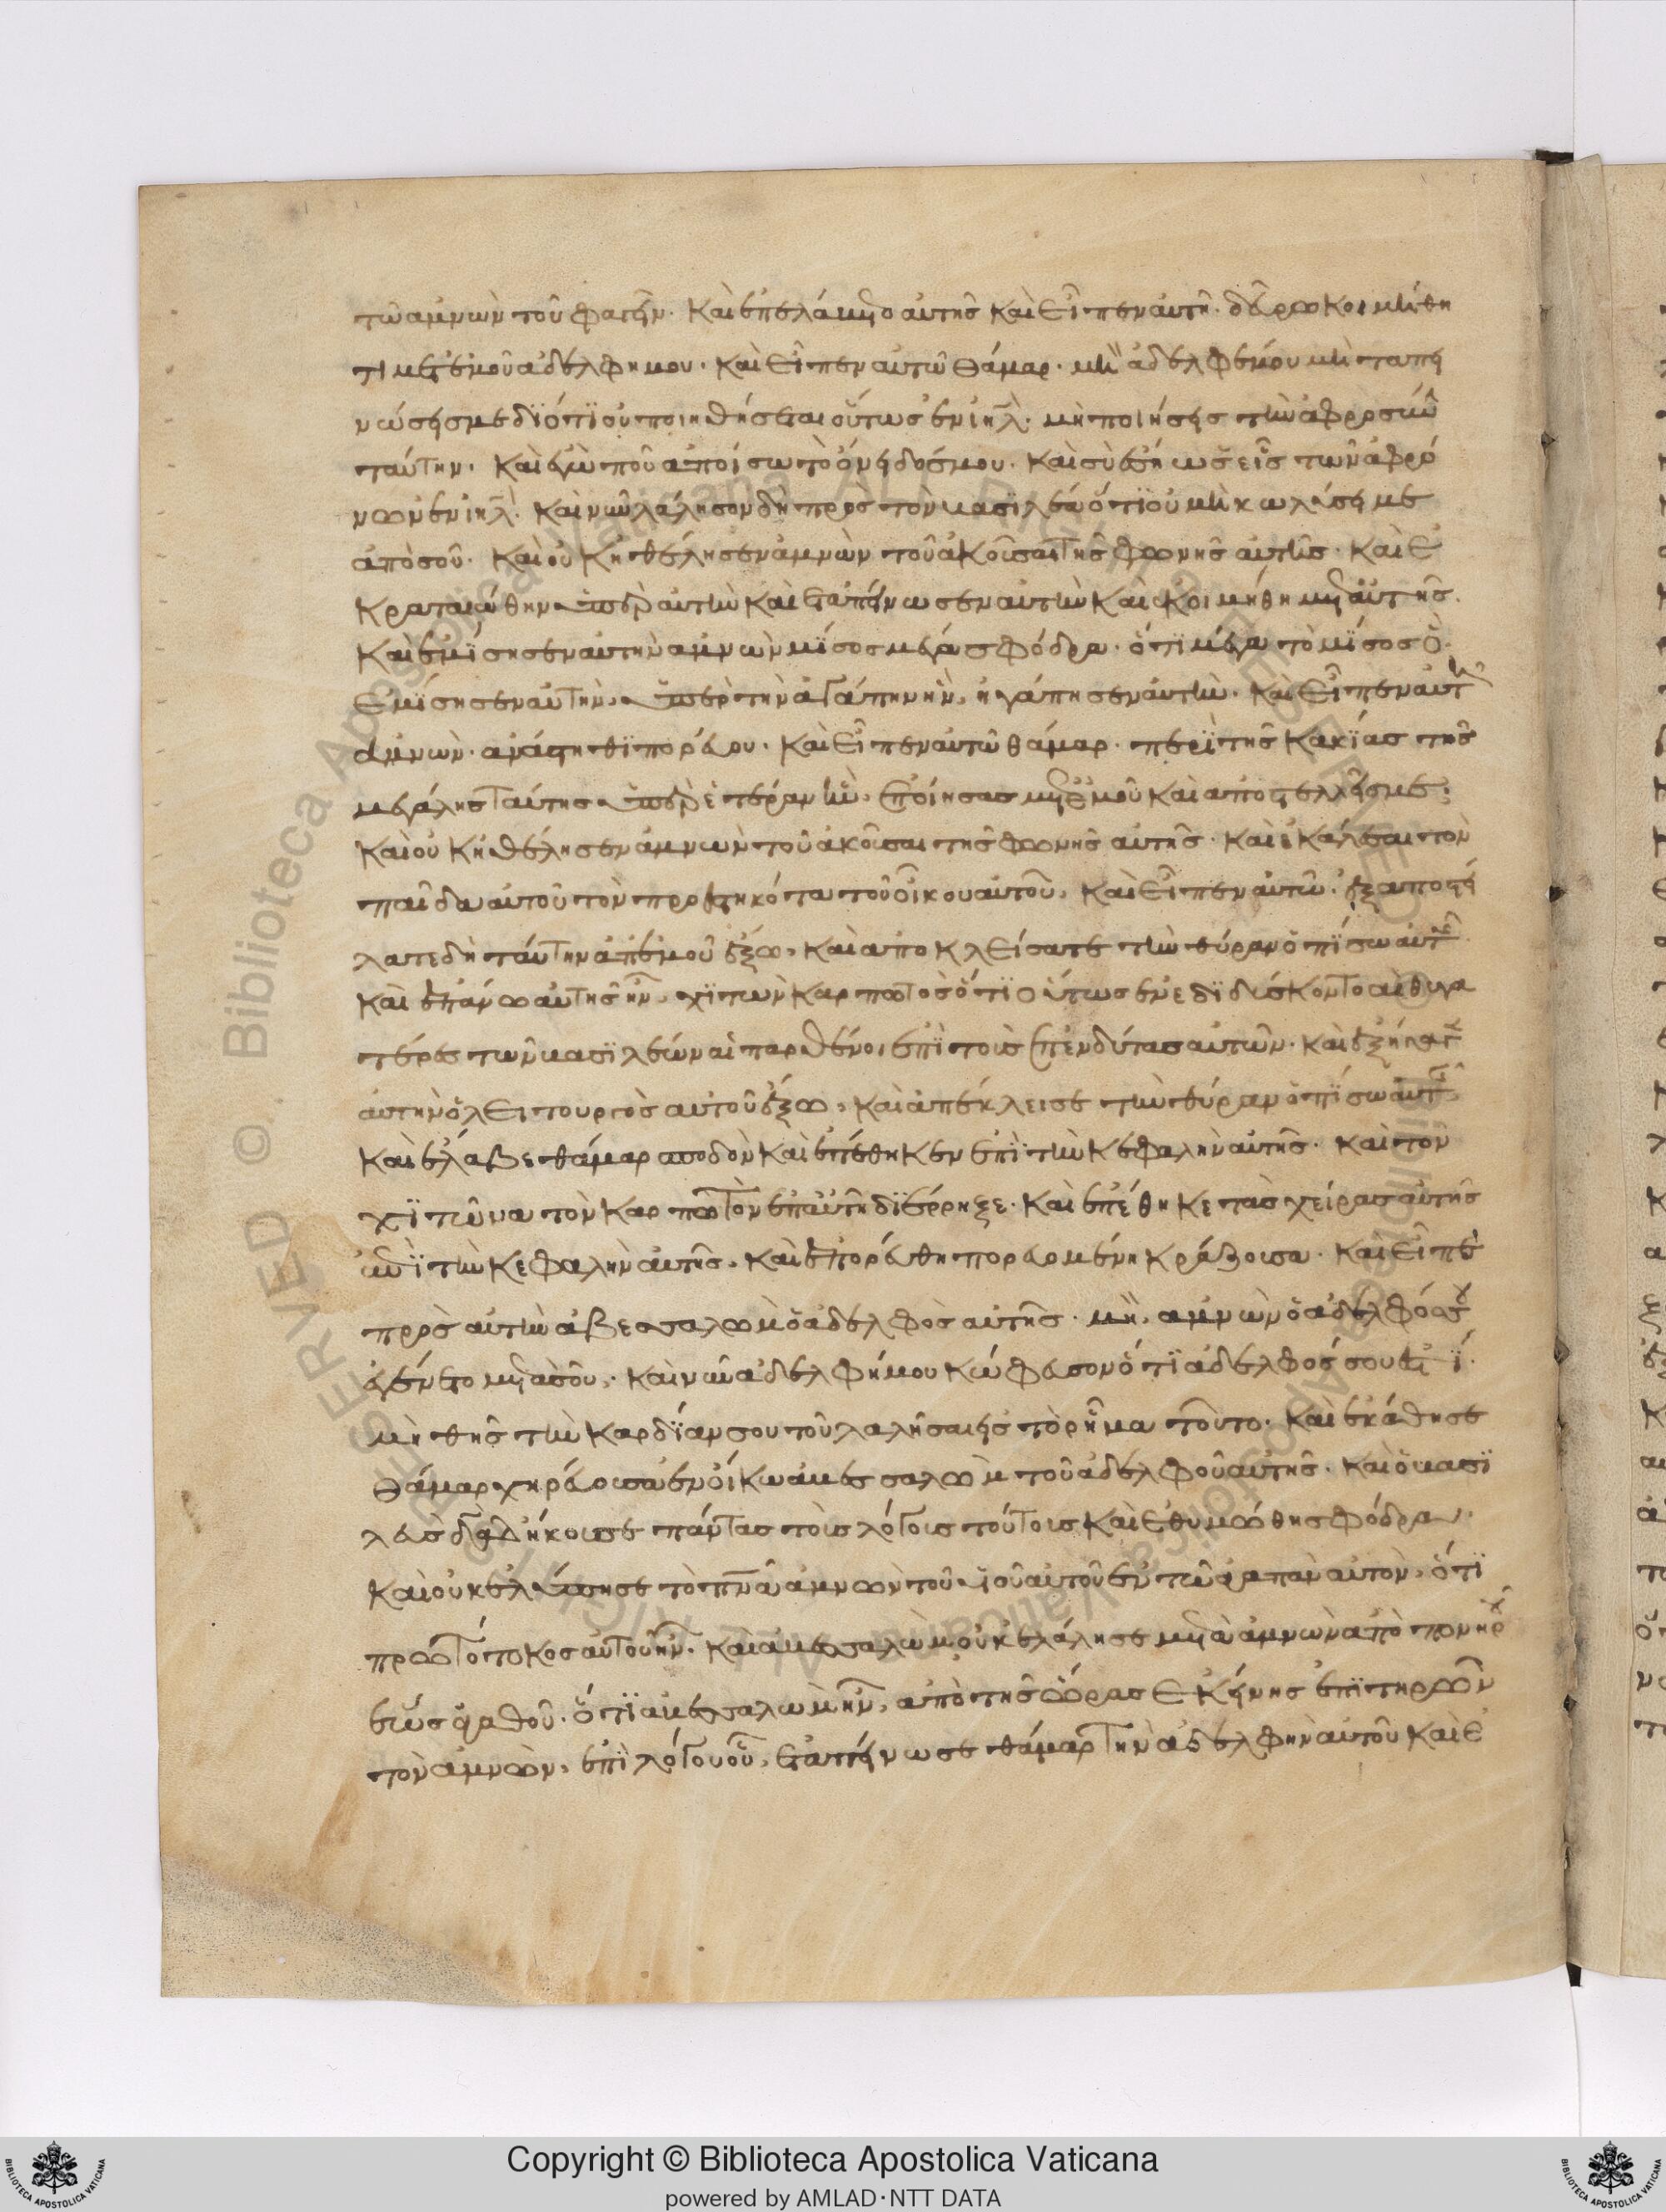 τῶ ἀμνὼν τοῦ φαγεῖν· καὶ ἐπελάβετο αὐτῆς καὶ εἶπεν αὐτῆ· δεῦρο κοιμήθη
τι μετ' ἐμοῦ ἀδελφή μου· καὶ εἶπεν αὐτῶ θάμαρ· μὴ ἀδελφέ μου μὴ ταπει
νώσης με διότι οὐ ποιηθήσεται οὕτως ἐν ιηλ· μὴ ποιήσης τὴν ἀφροσύνην
ταύτην· καὶ ἐγὼ ποῦ ἀποίσω τὸ ὄνειδός μου· καὶ σὺ ἔση ὡς εἷς τῶν ἀφρό
νων ἐν ιηλ· καὶ νῦν λάλησον δὴ πρὸς τὸν βασιλέα ὅτι οὐ μὴ κωλύση με
ἀπὸ σοῦ· καὶ οὐκ ἠθέλησεν ἀμνὼν τοῦ ἀκοῦσαι τῆς φωνῆς αὐτῆς· καὶ ἐ
κραταιώθην ὑπὲρ αὐτὴν καὶ ἐταπείνωσεν αὐτὴν καὶ ἐκοιμήθη μετ' αὐτῆς·
καὶ ἐμίσησεν αὐτὴν ἀμνὼν μῖσος μέγα σφόδρα· ὅτι μέγα τὸ μίσος ὃ
ἐμίσησεν αὐτὴν, ὑπὲρ τὴν ἀγάπην ἣν, ἠγάπησεν αὐτήν· καὶ εἶπεν αὐτῆ
ἀμνὼν· ἀνάστηθι πορεύου· καὶ εἶπεν αὐτῶ θάμαρ· περὶ τῆς κακίας τῆς
μεγάλης ταύτης ὑπὲρ ἑτέραν ἣν, ἐποίησας μετ' ἐμοῦ καὶ ἀποστελλεῖς με·
καὶ οὐκ ἠθέλησεν ἀμνὼν τοῦ ἀκοῦσαι τῆς φωνῆς αὐτῆς· καὶ ἐκάλεσαι τὸν
παῖδα αὐτοῦ τὸν προεστηκότα τοῦ οἴκου αὐτοῦ, καὶ εἶπεν αὐτῶ· ἐξαποστεί
λατε δὴ ταύτην ἀπ' ἐμοῦ ἔξω, καὶ ἀποκλείσατε τὴν θύραν ὀπίσω αὐτῆς
καὶ ἐπάνω αὐτῆς ἦν, χιτὼν καρπωτὸς ὅτι οὕτως ἐνεδιδύσκοντο αἱ θυγα
τέρες τῶν βασιλέων αἱ παρθένοι ἐπὶ τοὺς ἐπενδύτας αὐτῶν· καὶ ἐξήγαγεν
αὐτὴν ὁ λειτουργὸς αὐτοῦ ἔξω, καὶ ἀπέκλεισε τὴν θύραν ὀπίσω αὐτῆς
καὶ ἔλαβε θάμαρ σποδὸν καὶ ἐπέθηκεν ἐπὶ τὴν κεφαλὴν αὐτῆς· καὶ τὸν
χιτῶνα τὸν καρπωτὸν ἐπ' αὐτῆ διέρρηξε· καὶ ἐπέθηκε τὰς χεῖρας αὐτῆς
ἐπὶ τὴν κεφαλὴν αὐτῆς, καὶ ἐπορεύθη πορευομένη κράζουσα· καὶ εἶπε
πρὸς αὐτὴν ἀβεσσαλὼμ ὁ ἀδελφὸς αὐτῆς· μὴ, ἀμνὼν ὁ ἀδελφός σου
ἐγένετο μετὰ σοῦ, καὶ νῦν ἀδελφή μου κώφευσον ὅτι ἀδελφός σου ἐστί·
μὴ θῆς τὴν καρδίαν σου τοῦ λαλῆσαι εἰς τὸ ρῆμα τοῦτο· καὶ ἐκάθησε
θάμαρ χηρεύουσα ἐν οἴκω ἀβεσσαλὼμ τοῦ ἀδελφοῦ αὐτῆς· καὶ ὁ βασι
λεὺς δαδ ἤκουσε πάντας τοὺς λόγους τούτους καὶ ἐθυμώθη σφόδρα·
καὶ οὐκ ἐλύπησε τὸ πνα ἀμνὼν τοῦ υἱοῦ αὐτοῦ ἐν τῶ ἀγαπᾶν αὐτὸν, ὅτι
πρωτότοκος αὐτοῦ ἦν· καὶ ἀβεσσαλὼμ οὐκ ἐλάλησε μετὰ ἀμνὼν ἀπὸ πονηροῦ
ἕως ἀγαθοῦ· ὅτι ἀβεσσαλὼμ ἦν, ἀπὸ τῆς ὥρας ἐκείνης ἐπιτηρῶν
τὸν ἀμνὼν, ἐπὶ λόγου οὗ, ἐταπείνωσε θάμαρ τὴν ἀδελφὴν αὐτοῦ καὶ ἐ
Copyright © Biblioteca Apostolica Vaticana
powered by AMLAD·NTT DATA